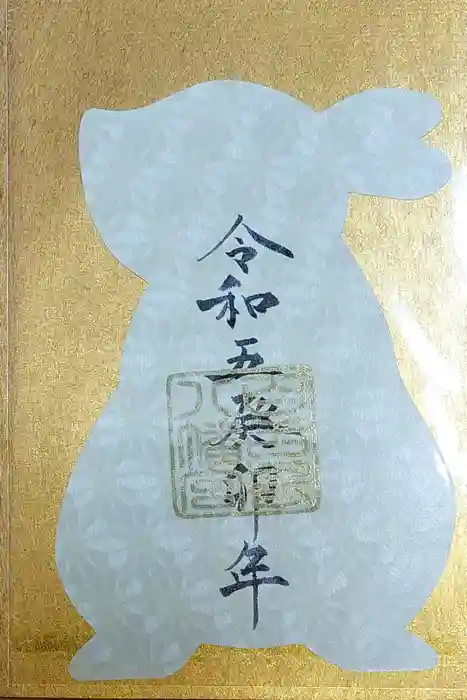 令和五癸卯年